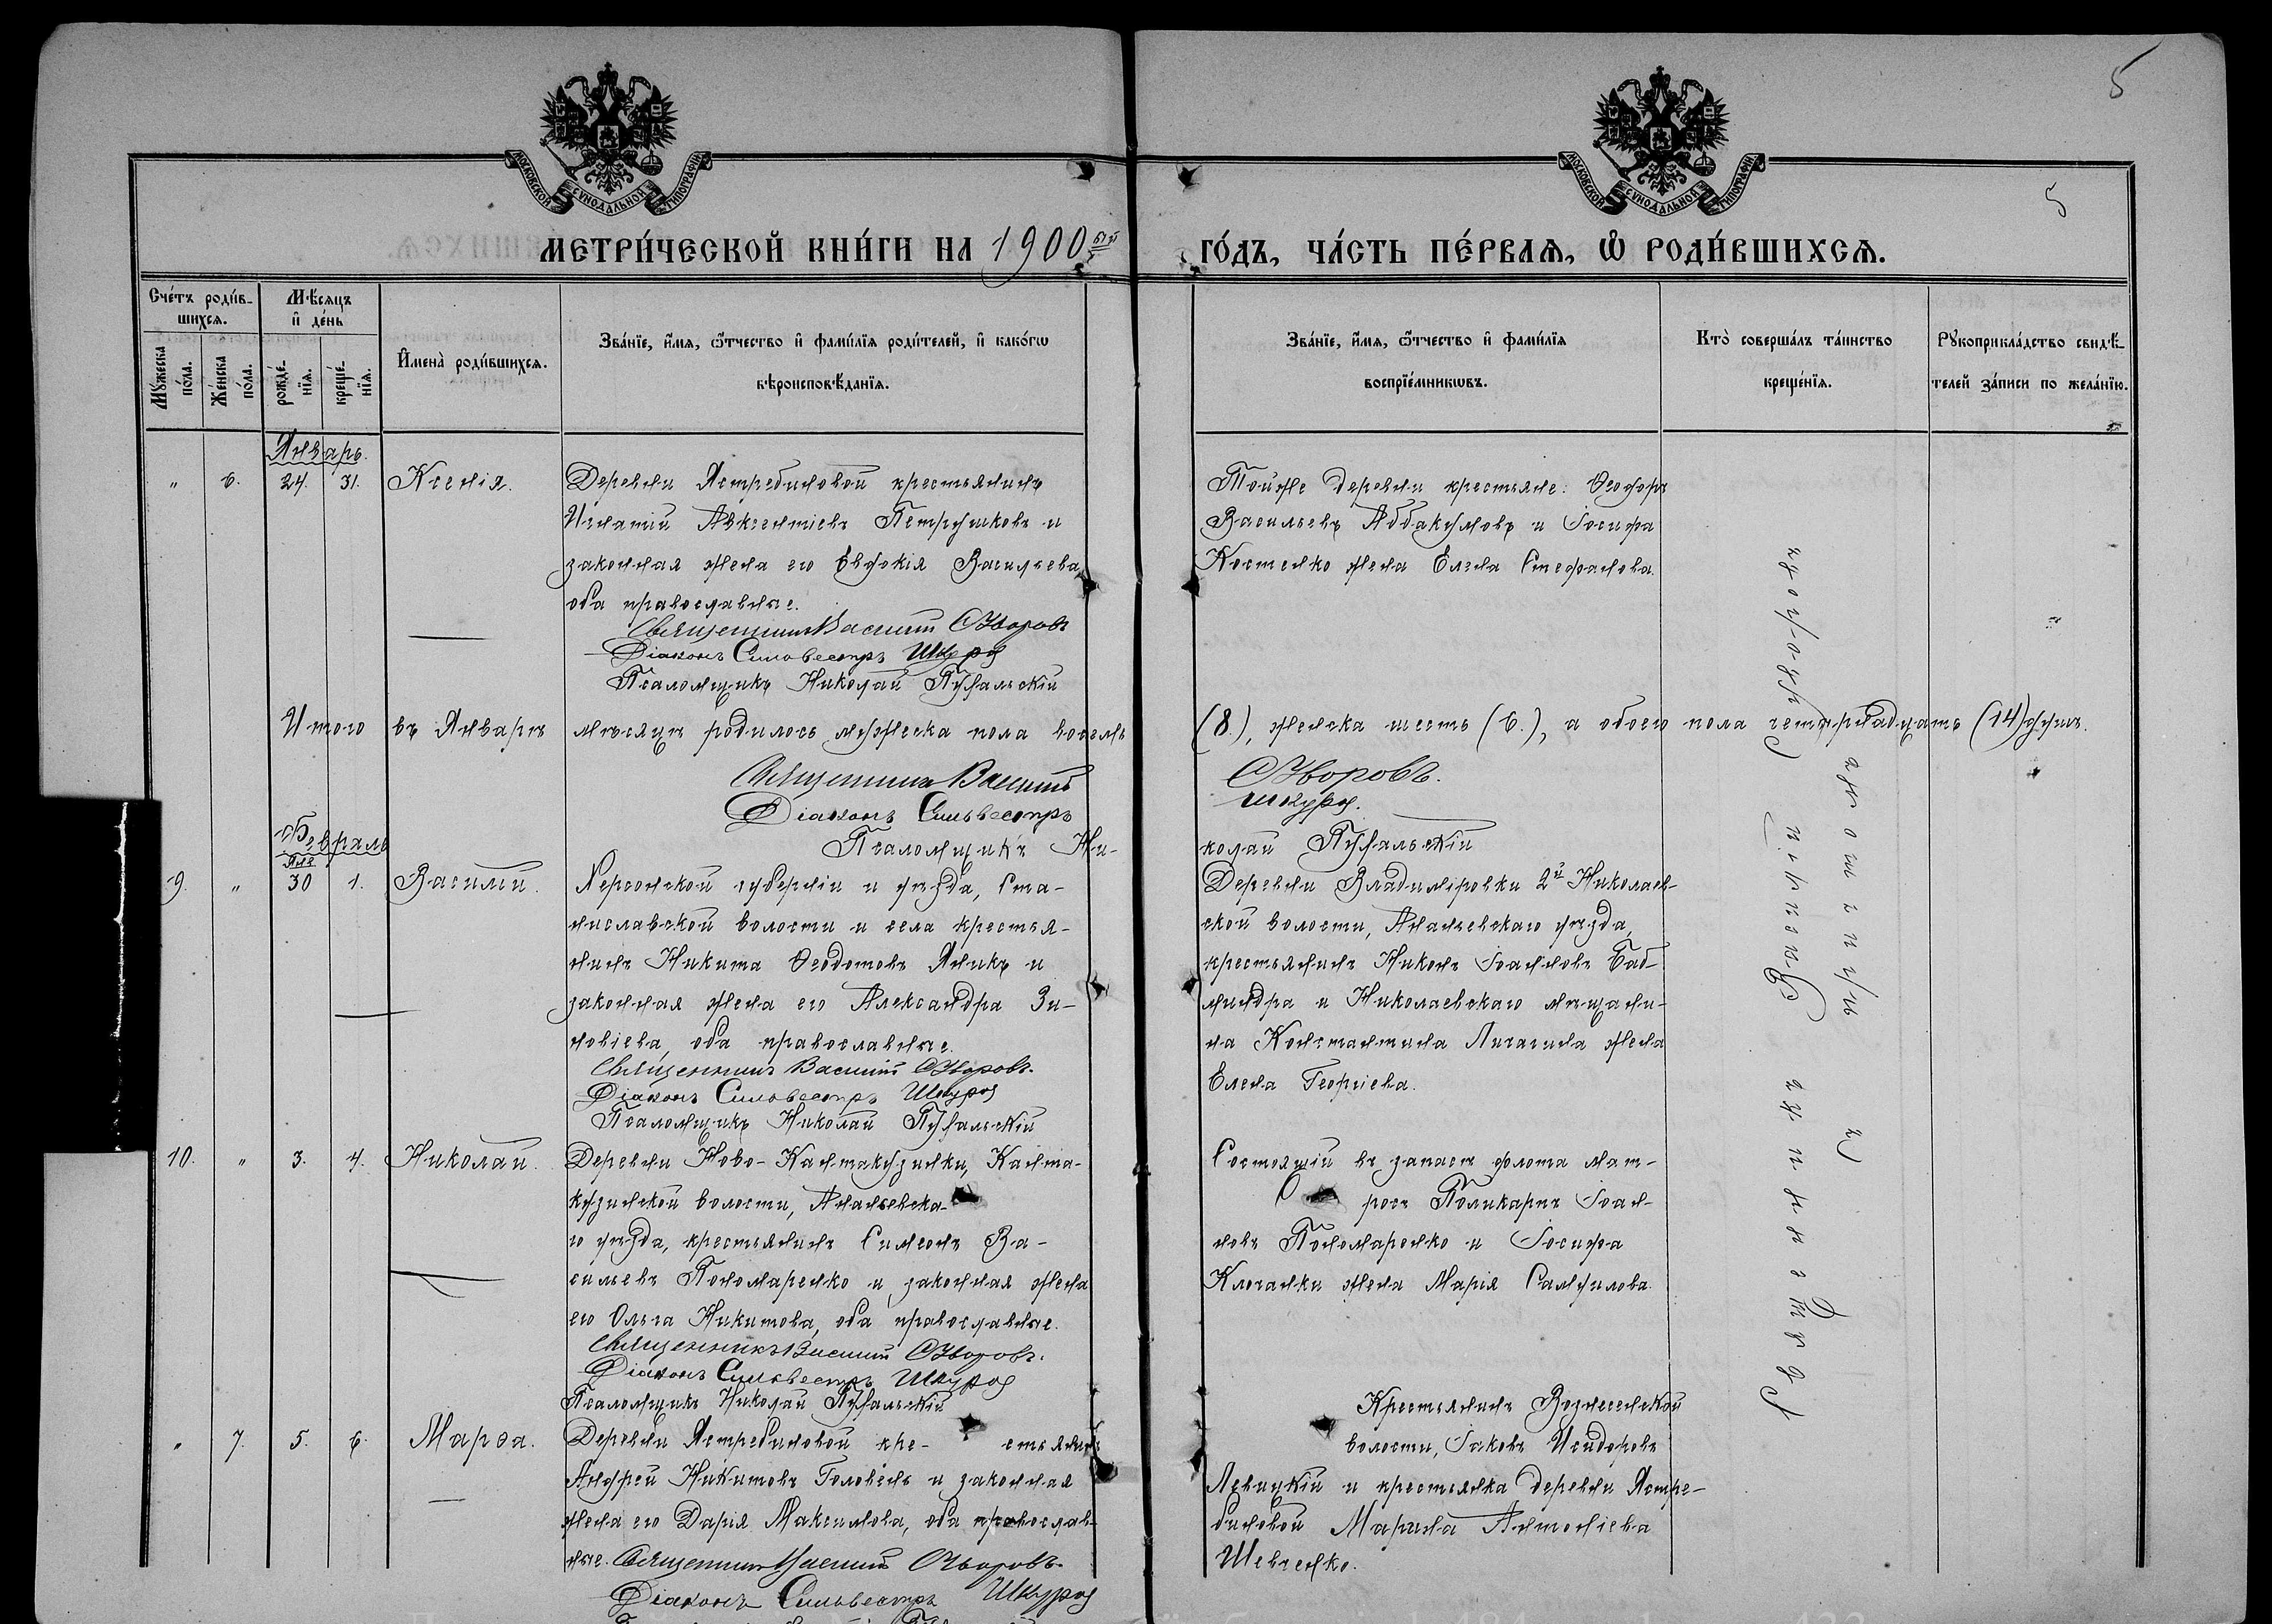 5
МОСКОВСКОЙ СѴНОДАЛЬНОЙ ТИПОГРАФІИ
МОСКОВСКОЙ СѴНОДАЛЬНОЙ ТИПОГРАФІИ
5
МЕТРИ́ЧЕСКОЙ КНИ́ГИ НА 1900ый ГО́ДЪ, ЧА́СТЬ ПЕ́РВАѦ, Ѡ҆ РОДИ́ВШИХСѦ.
Сче́тъ роди́в-
шихсѧ.
Мѣ́сѧцъ
и҆ де́нь
Мꙋ́жеска
по́ла.
Же́нска
по́ла.
рожде́-
нїѧ.
креще́-
нїѧ.
И҆мена̀ роди́вшихсѧ.
Зва́нїе, и҆́мѧ, ѻ҆́тчество и҆ фами́лїѧ роди́телей, и҆ како́гѡ
вѣроисповѣ́данїѧ.
Зва́нїе, и҆́мѧ, ѻ҆́тчество и҆ фами́лїѧ
воспрїе́мникѡвъ.
Кто̀ соверша́лъ та́инство
креще́нїѧ.
Рꙋкоприкла́дство свидѣ́-
телей за́писи по жела́нїю.
Январь.
" 6. 24. 31. Ксенія.
Деревни Ястребиновой крестьянинъ
Игнатій Авксентіевъ Петрушковъ и
законная жена его Евдокія Васильева,
оба православные.
Священникъ Василій
Діаконъ Сильвестръ Шкура
Псаломщикъ Николай
Тойже деревни крестьяне: Ѳеодоръ
Васильевъ Аббакумовъ и Іосифа
Костенко жена Елена Стефанова.
Итого въ Январѣ мѣсяцѣ родилось мужеска пола восемь (8.), женска шесть (6.), а обоего пола четырнадцать (14) душъ.
Священникъ Василій
Діаконъ Сильвестръ Шкура.
Псаломщикъ Николай
Февраль
Янв.
9. " 30 1. Василій.
Херсонской губерніи и уѣзда, Ста-
ниславской волости и села крестья-
нинъ Никита Ѳеодотовъ Яникъ и
законная жена его Александра Зи-
новіева, оба православные.
Священникъ Василій
Діаконъ Сильвестръ Шкура
Псаломщикъ Николай
Деревни Владиміровки 2й Николаев-
ской волости, Ананьевскаго уѣзда,
крестьянинъ Никонъ Іоанновъ Баб-
миндра и Николаевскаго мѣщани-
на Константина Личагина жена
Елена Георгіева.
10. " 3. 4. Николай.
Деревни Ново-Кантакузинки, Канта-
кузинской волости, Ананьевска-
го уѣзда, крестьянинъ Симеонъ Ва-
сильевъ Пономаренко и законная жена
его Ольга Никитова, оба православные.
Священникъ Василій
Діаконъ Сильвестръ Шкура
Псаломщикъ Николай
Состоящій въ запасѣ флота мат-
росъ Поликарпъ Іоан-
новъ Пономаренко и Іосифа
Клочанки жена Марія Самуилова.
" 7. 5. 6. Марѳа.
Деревни Ястребиновой крестьянинъ
Андрей Никитовъ Головень и законная
жена его Дарія Максимова, оба православ-
ные. Священникъ Василій
Діаконъ Сильвестръ Шкура
Крестьянинъ Вознесенской
волости, Іаковъ Исидоровъ
Левицкій и крестьянка деревни Ястре-
биновой Марина Антоніева
Шевченко.
Священникъ Василій